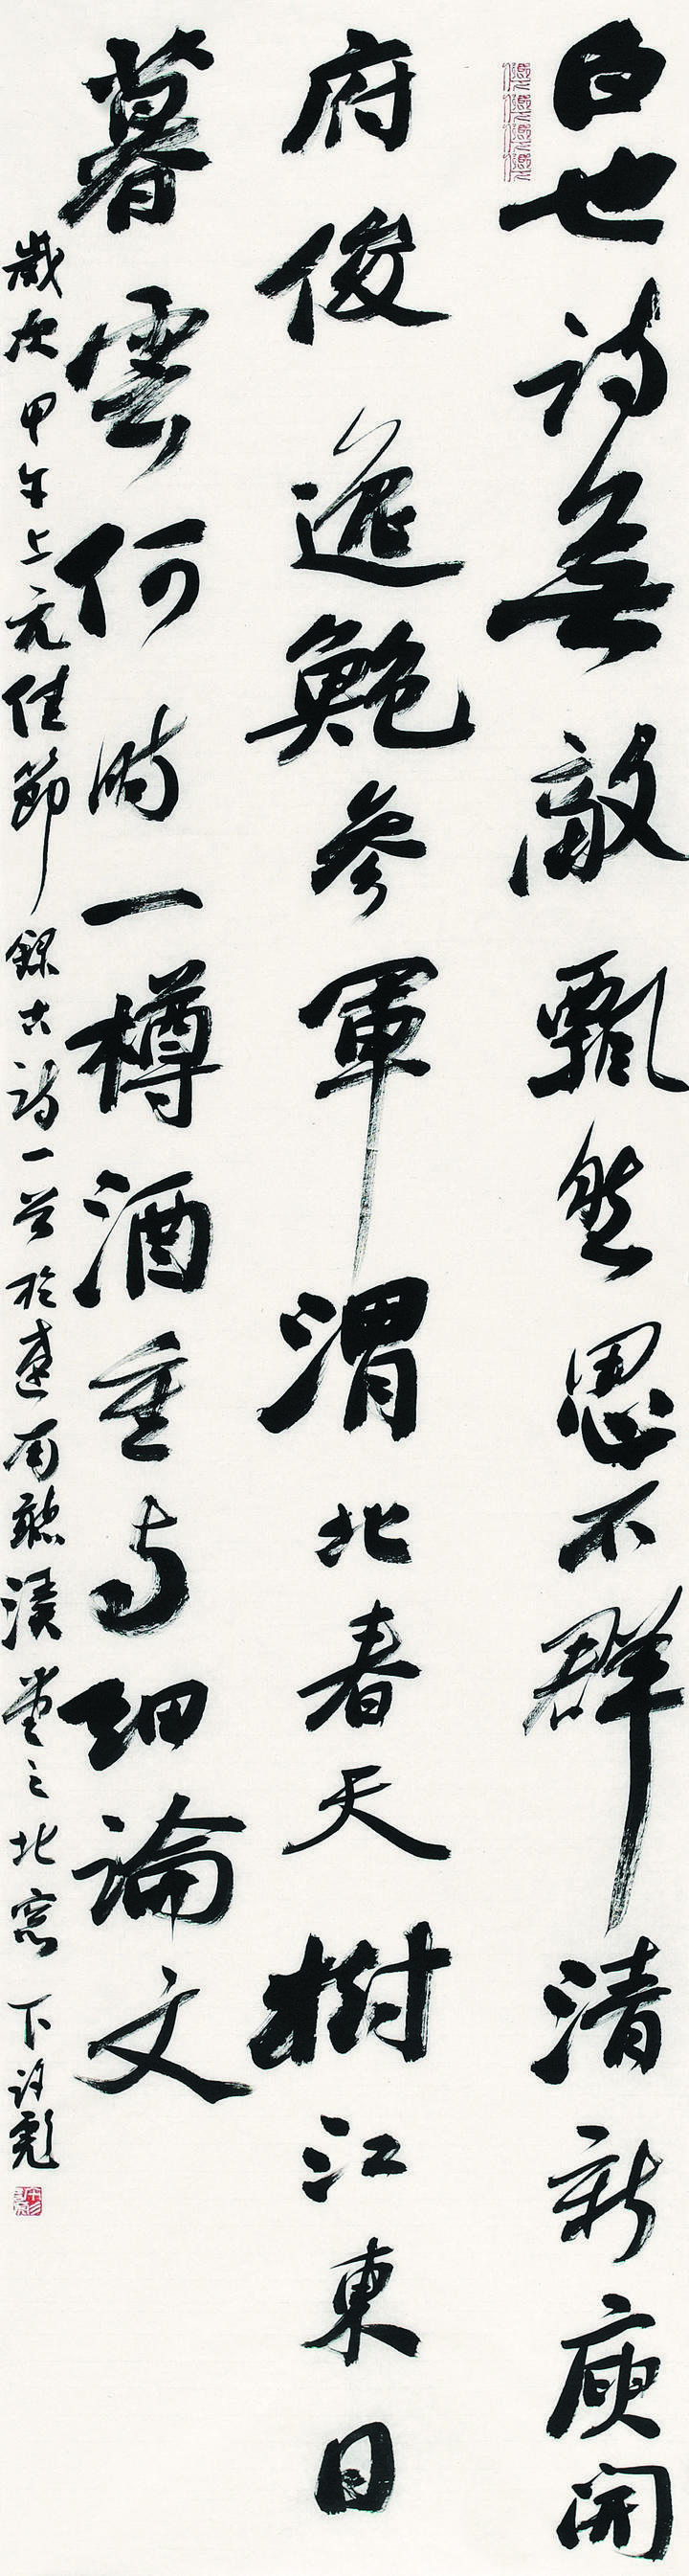 白也詩無敵飄然思不群清新庾開
府俊逸鮑參軍渭北春天樹江東日
暮雲何時一樽酒重與細論文
歲次甲午上元佳節錄古詩一首於連雨聽濤堂之北窗下許彪